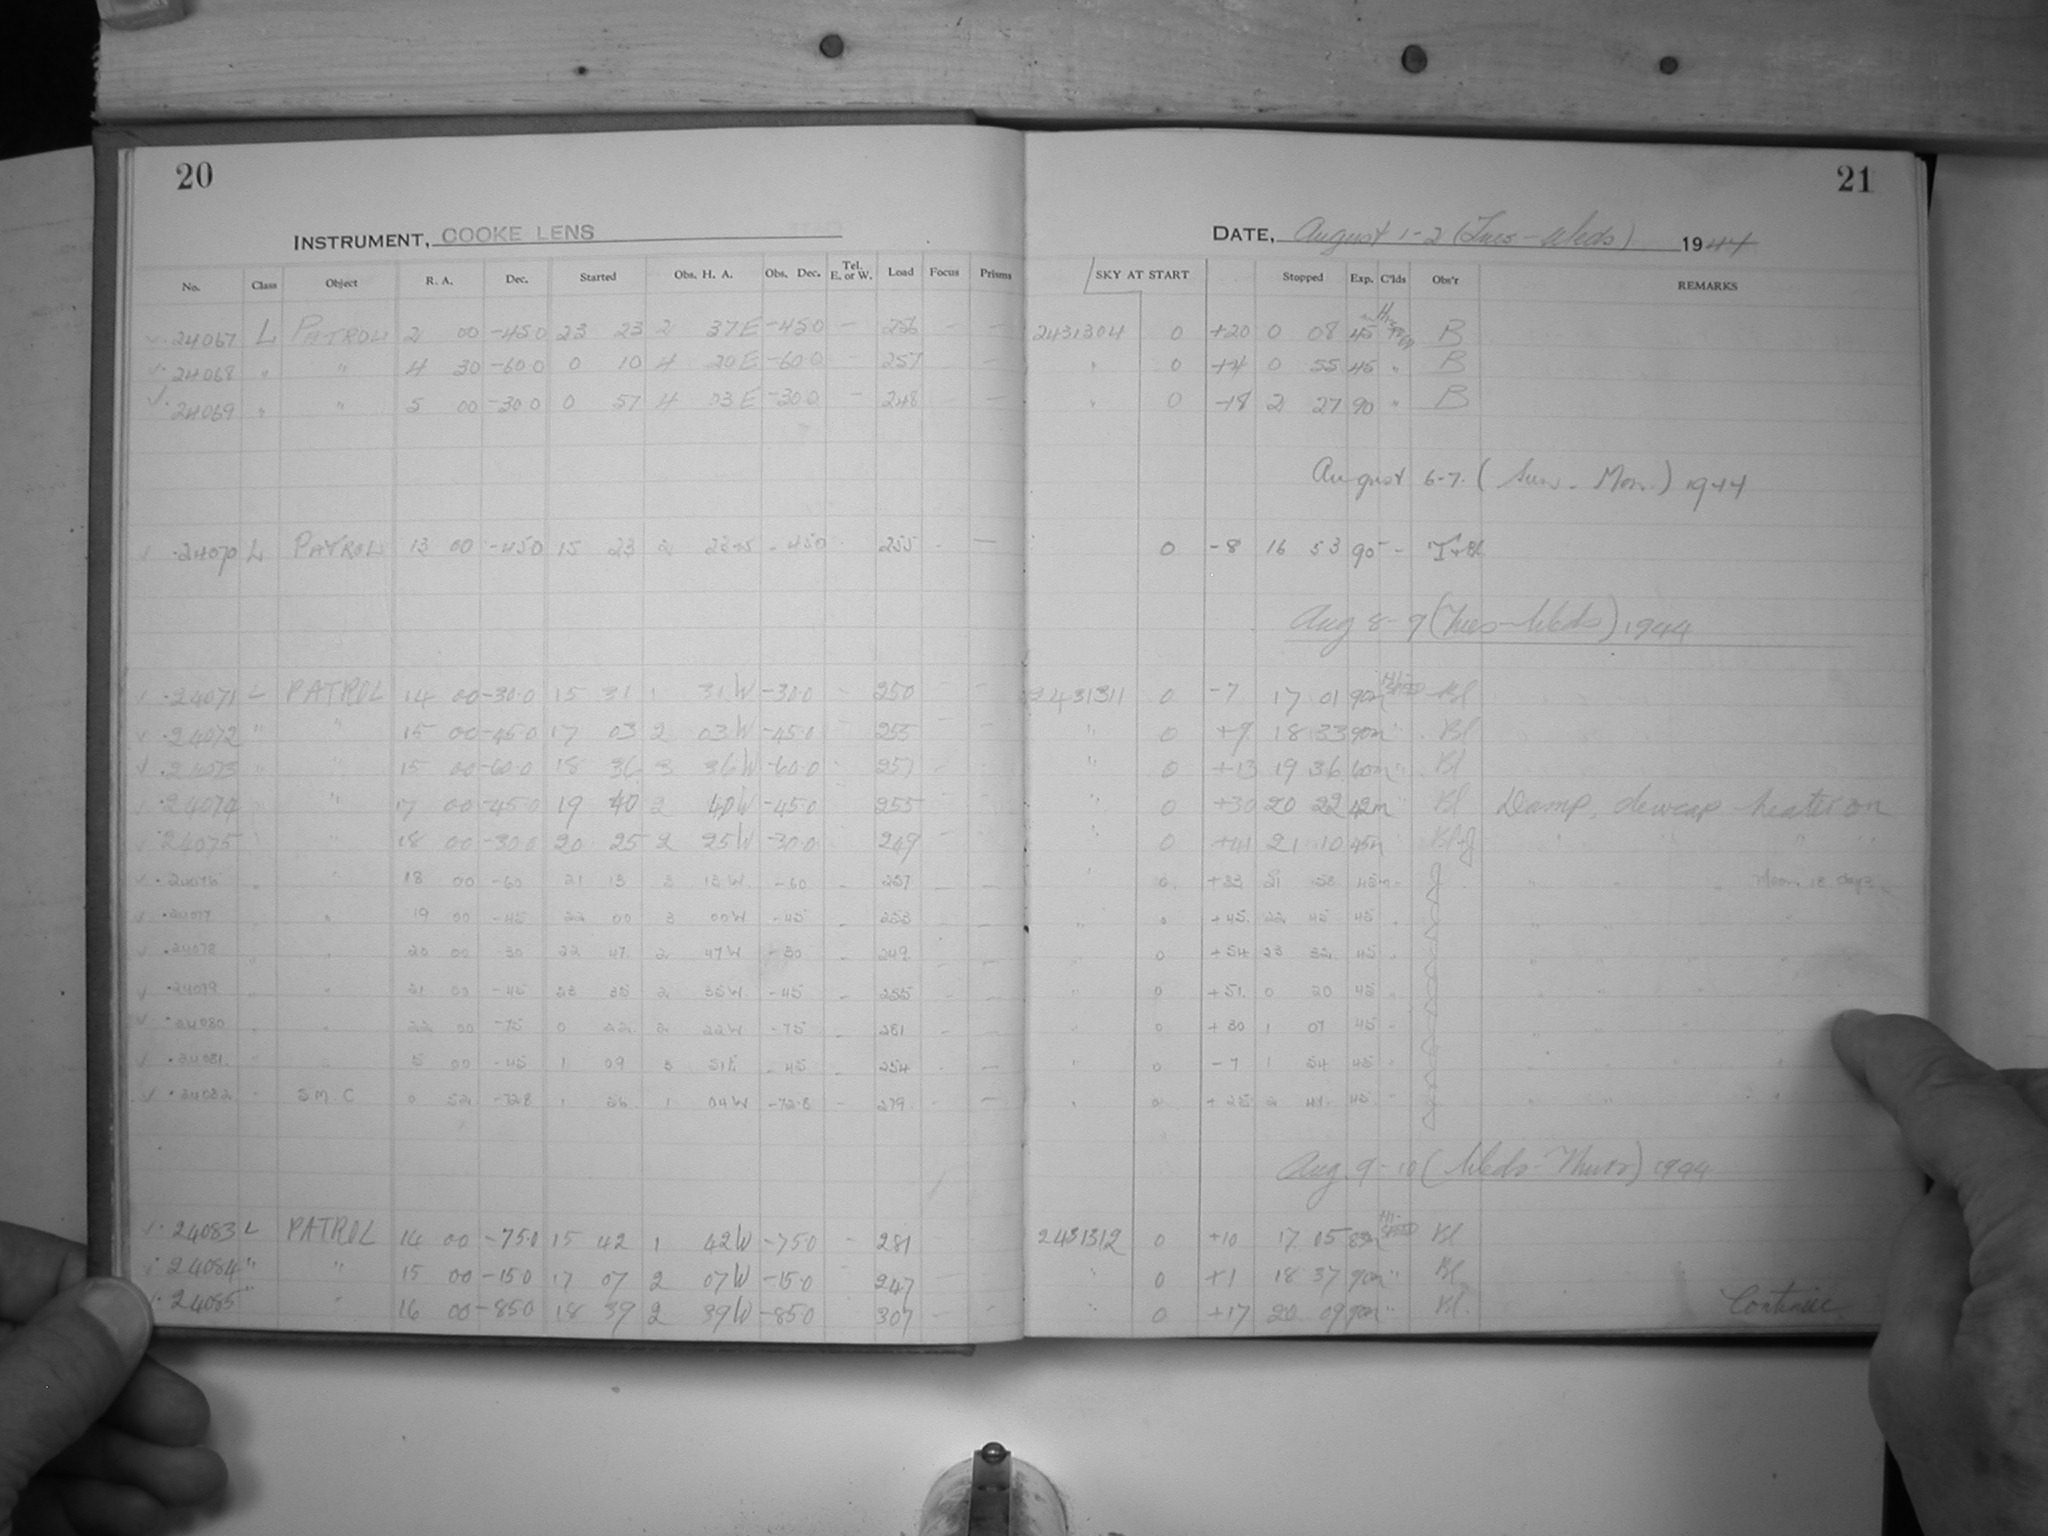 20
21
INSTRUMENT, COOKE LENS
DATE, August 1-2 (Tues-Weds) 1944
No. Class Object R. A. Dec. Started Obs. H. A. Obs. Dec. Tel. E. or W. Load Focus Prisms SKY AT START Stopped Exp. C'lds Obs'r REMARKS
24067 L PATROL 2 00 -45.0 23 23 2 37E -45.0 - 256 - - 2431304 0 +20 0 08 45 B
24068 " " 4 30 -60.0 0 10 4 20E -60.0 - 257 - - " 0 0 55 45 " B
24069 " " 5 00 -30.0 0 57 4 03E -30.0 - 248 - - " 0 2 27 90 " B
August 6-7. (Sun. - Mon.) 1944
24070 L PATROL 13 00 -45.0 15 23 2 -45.0 255 - - 0 -8 16 53 90 -
Aug 8-9 (Tues-Weds) 1944
24071 L PATROL 14 00 -30.0 15 31 1 31W -30.0 - 250 - - 2431311 0 -7 17 01 90m HI-SPEED Bl
24072 " " 15 00 -45.0 17 03 2 03W -45.0 255 " 0 +9 18 33 90m " Bl
24073 " " 15 00 -60.0 18 36 3 36W -60.0 257 " 0 +13 19 36 60m " Bl
24074 " " 17 00 -45.0 19 40 2 40W -45.0 255 " 0 +30 20 22 42m " Bl Damp, dewcap heater on
24075 " 18 00 -30.0 20 25 2 25W -30.0 249 " 0 +41 21 10 45m " Bl+J " " " "
24076 " " 18 00 -60 21 13 3 13W -60 - 257 - - " 0 +33 21 58 45m - J " " Moon 18 days
24077 " 19 00 -45 22 00 3 00W -45 - 253 - - " 0 +45 22 45 45 "
24078 " " 20 00 -30 22 47 2 47W -30 - 249 - - " 0 +54 23 32 45 "
24079 " " 21 00 -45 23 35 2 35W -45 - 255 - - " 0 +51 0 20 45 "
24080 " " 22 00 -75 0 22 2 22W -75 - 281 - - " 0 +30 1 07 45 "
24081 " " 5 00 -45 1 09 3 51E -45 - 254 - - " 0 -7 1 54 45 "
24082 " S M C 0 52 -72.8 1 56 1 04W -72.8 - 279 - - " 0 +25 2 41 45 "
Aug 9-10 (Weds-Thurs) 1944
24083 L PATROL 14 00 -75.0 15 42 1 42W -75.0 - 281 - 2431312 0 +10 17 05 83m HI-SPEED Bl
24084 " " 15 00 -15.0 17 07 2 07W -15.0 247 - " 0 +1 18 37 90m " Bl
24085 " " 16 00 -85.0 18 39 2 39W -85.0 307 - - " 0 +17 20 09 90m " Bl. Continue